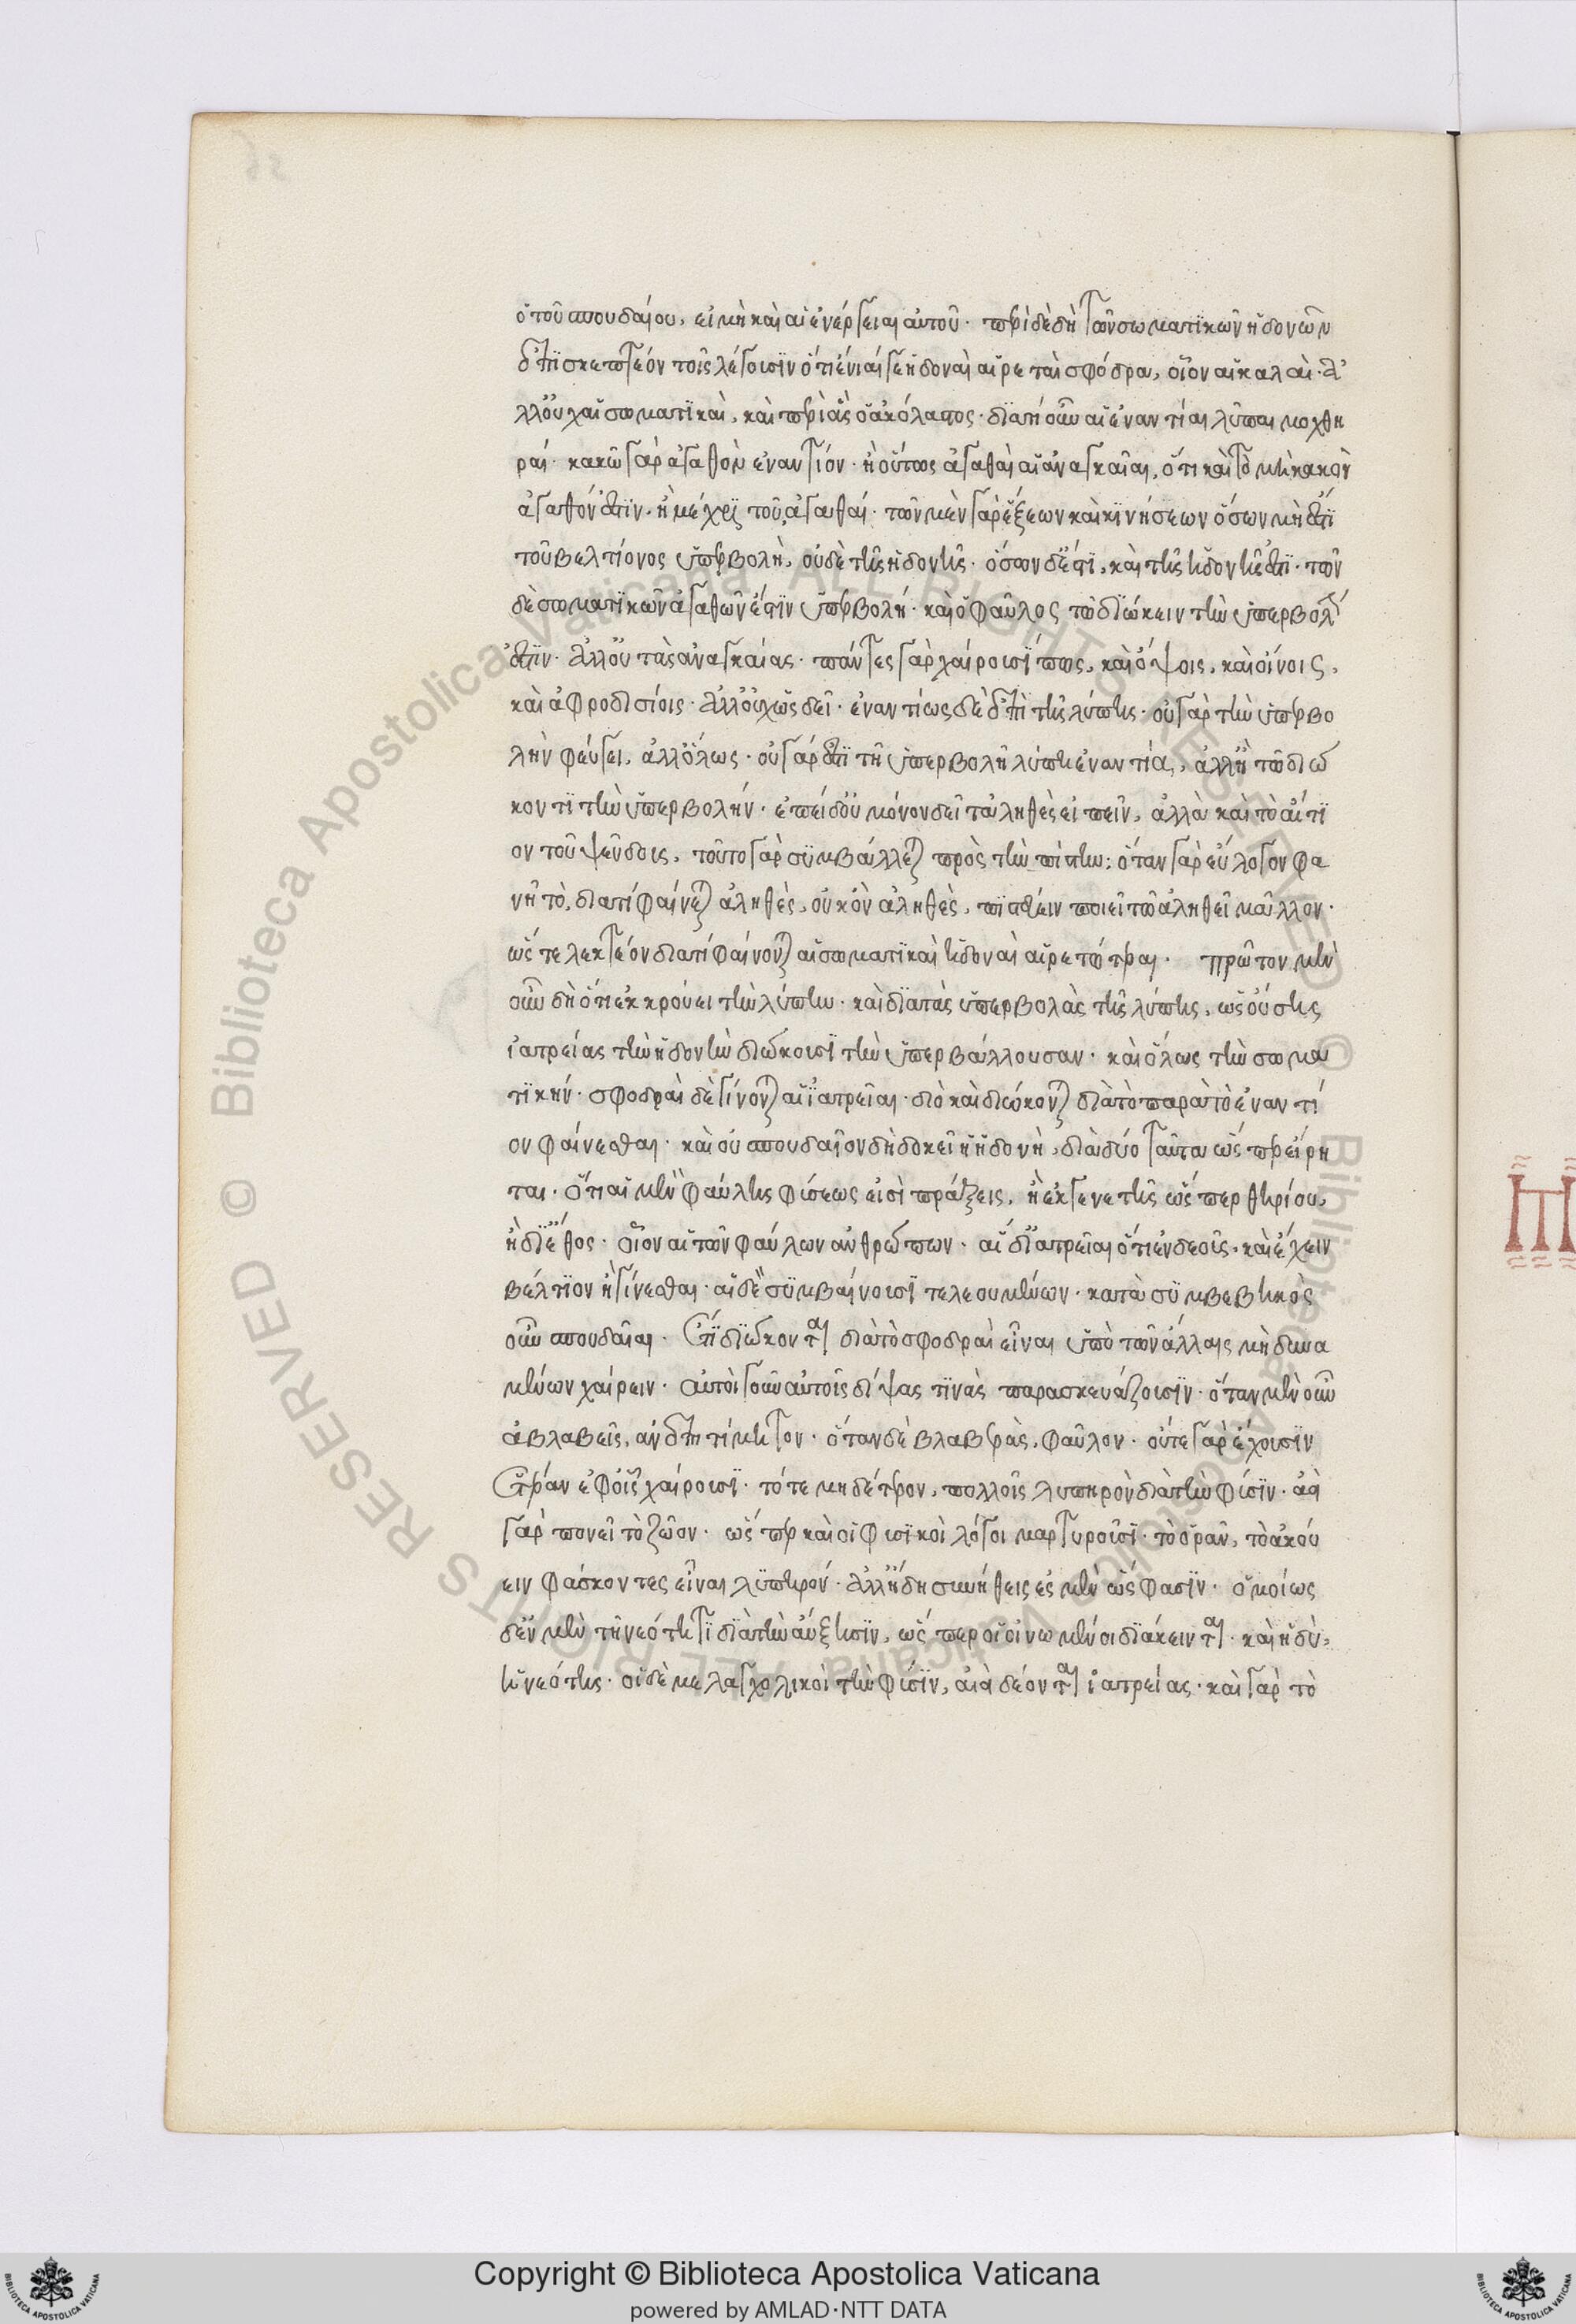 ὁ τοῦ σπουδαίου, εἰ μὴ καὶ αἱ ἐνέργειαι αὐτοῦ· περὶ δὲ δὴ τῶν σωματϊκῶν ἡδονῶν
ἐπισκεπτέον τοῖς λέγουσϊν ὅτι ἔνιαί γε ἡδοναὶ αἱρεταὶ σφόδρα, οἷον αἱ καλαὶ· ἀ
λλ' οὐχ αἱ σωματϊκαὶ, καὶ περὶ ἃς ὁ ἀκόλαστος· δϊατί οὖν αἱ ἐναντίαι λῦπαι μοχθη
ραί· κακῶ γὰρ ἀγαθὸν ἐναντίον· ἢ οὕτως ἀγαθαὶ αἱ ἀναγκαῖαι, ὅτι καὶ τὸ μὴ κακὸν
ἀγαθόν ἐστϊν· ἢ μέχρϊ τοῦ, ἀγαθαί· τῶν μὲν γὰρ ἕξεων καὶ κϊνήσεων ὅσων μὴ ἔστϊ
τοῦ βελτίονος ὑπερβολὴ, οὐδὲ τῆς ἡδονῆς· ὅσων δ' ἔστϊ, καὶ τῆς ἡδονῆς ἐστι· τῶν
δὲ σωματϊκῶν ἀγαθῶν ἔστϊν ὑπερβολή· καὶ ὁ φαῦλος τῶ δϊώκειν τὴν ὑπερβολήν
ἐστϊν· ἀλλ' οὐ τὰς ἀναγκαίας· πάντες γὰρ χαίρουσϊ πως, καὶ ὄψοις, καὶ οἴνοις,
καὶ ἀφροδισίοις· ἀλλ' οὐχ ὡς δεῖ· ἐναντίως δὲ ἐπὶ τῆς λύπης· οὐ γὰρ τὴν ὑπερβο
λὴν φεύγει, ἀλλ' ὅλως· οὐ γάρ ἐστϊ τῆ ὑπερβολῆ λύπη ἐναντία, ἀλλ' ἢ τῶ διώ
κοντϊ τὴν ὑπερβολήν· ἐπεὶ δ' οὐ μόνον δεῖ τἀληθὲς εἰπεῖν, ἀλλὰ καὶ τὸ αἴτϊ
ον τοῦ ψεῦδους, τοῦτο γὰρ σϋμβάλλεται πρὸς τὴν πίστιν· ὅταν γὰρ εὔλογον φα
νῆ τὸ, διατί φαίνεται ἀληθὲς, οὐκ ὂν ἀληθὲς, πϊστεύειν ποιεῖ τῶ ἀληθεῖ μᾶλλον·
ὥστε λεκτέον διατί φαίνονται αἱ σωματϊκαὶ ἡδοναὶ αἱρετώτεραι· πρῶτον μὲν
οὖν δὴ ὅτι ἐκκρούει τὴν λύπην· καὶ δϊὰ τὰς ὑπερβολὰς τῆς λύπης, ὡς οὔσης
ἰατρείας τὴν ἡδονὴν διώκουσϊ τὴν ὑπερβάλλουσαν· καὶ ὅλως τὴν σωμα
τϊκήν· σφοδραὶ δὲ γίνονται αἱ ἰατρεῖαι· διὸ καὶ διώκονται διὰ τὸ παρὰ τὸ ἐναντί
ον φαίνεσθαι· καὶ οὐ σπουδαῖον δὴ δοκεῖ ἡ ἡδονὴ, διὰ δύο ταῦτα ὥσπερ εἴρη
ται· ὅτι αἱ μὲν φαύλης φύσεως εἰσὶ πράξεις, ἢ ἐκ γενετῆς ὥσπερ θηρίου,
ἢ δϊ' ἔθος· οἷον αἱ τῶν φαύλων ἀνθρώπων· αἱ δ' ἰατρεῖαι ὅτι ἐνδεοῦς, καὶ ἔχειν
βέλτϊον ἢ γίνεσθαι· αἱ δὲ σϋμβαίνουσϊ τελεουμένων· κατὰ σϋμβεβηκὸς
οὖν σπουδαῖαι· ἔτϊ δϊώκονται διὰ τὸ σφοδραὶ εἶναι ὑπὸ τῶν ἄλλαις μὴ δυνα
μένων χαίρειν· αὐτοὶ γοῦν αὐτοῖς δίψας τϊνὰς παρασκευάζουσϊν· ὅταν μὲν οὖν
ἀβλαβεῖς, ἀνεπιτίμητον· ὅταν δὲ βλαβερὰς, φαῦλον· οὔτε γὰρ ἔχουσϊν
ἕτερα ἐφ' οἷς χαίρουσϊ· τό τε μηδέτερον, πολλοῖς λυπηρὸν διὰ τὴν φύσϊν· ἀεὶ
γὰρ πονεῖ τὸ ζῶον· ὥσπερ καὶ οἱ φυσϊκοὶ λόγοι μαρτυροῦσϊ· τὸ ὁρᾶν, τὸ ἀκού
ειν φάσκοντες εἶναι λϋπηρόν· ἀλλ' ἤδη συνήθεις ἐσμὲν ὥς φασϊν· ὁμοίως
δ' ἐν μὲν τῆ νεότητϊ δϊὰ τὴν αὔξησϊν, ὥσπερ οἱ οἰνωμένοι δϊάκεινται· καὶ ἡδὺ,
ἡ νεότης· οἱ δὲ μελαγχολικοὶ τὴν φύσϊν, ἀεὶ δέονται ἰατρείας· καὶ γὰρ τὸ
Copyright © Biblioteca Apostolica Vaticana
powered by AMLAD·NTT DATA